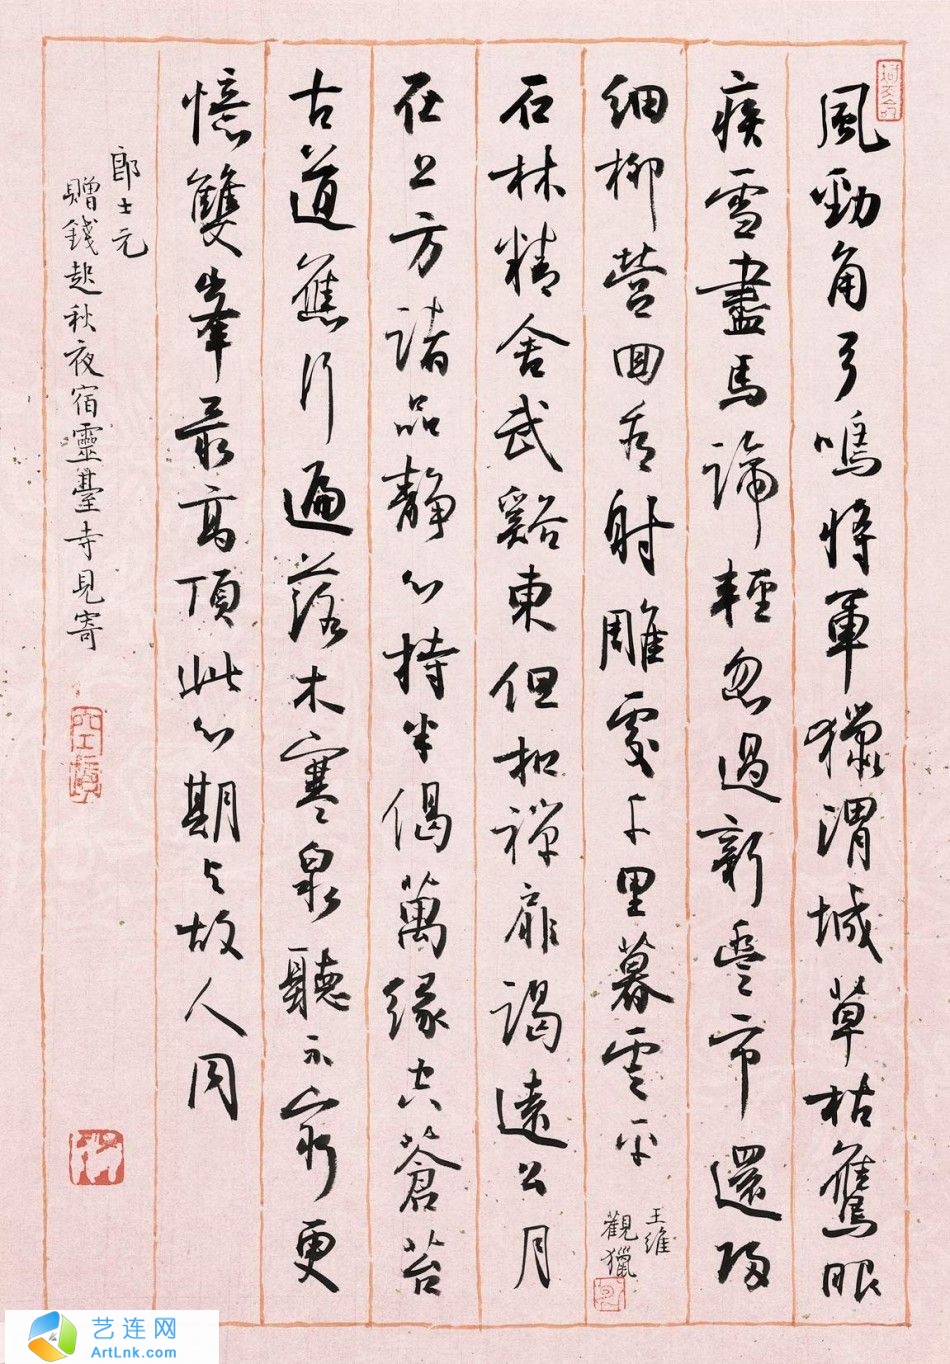 風勁角弓鳴將軍獵渭城草枯鷹眼
疾雪盡馬蹄輕忽過新豐市還歸
細柳營回看射雕處千里暮雲平
王維
觀獵
石林精舍武谿東但扣禪扉謁遠公月
在上方諸品靜心持半偈萬緣空蒼苔
古道蕉行遍落木寒泉聽不窮更
憶雙峯最高頂此心期與故人同
郎士元
贈錢起秋夜宿靈臺寺見寄
艺连网
ArtLnk.com